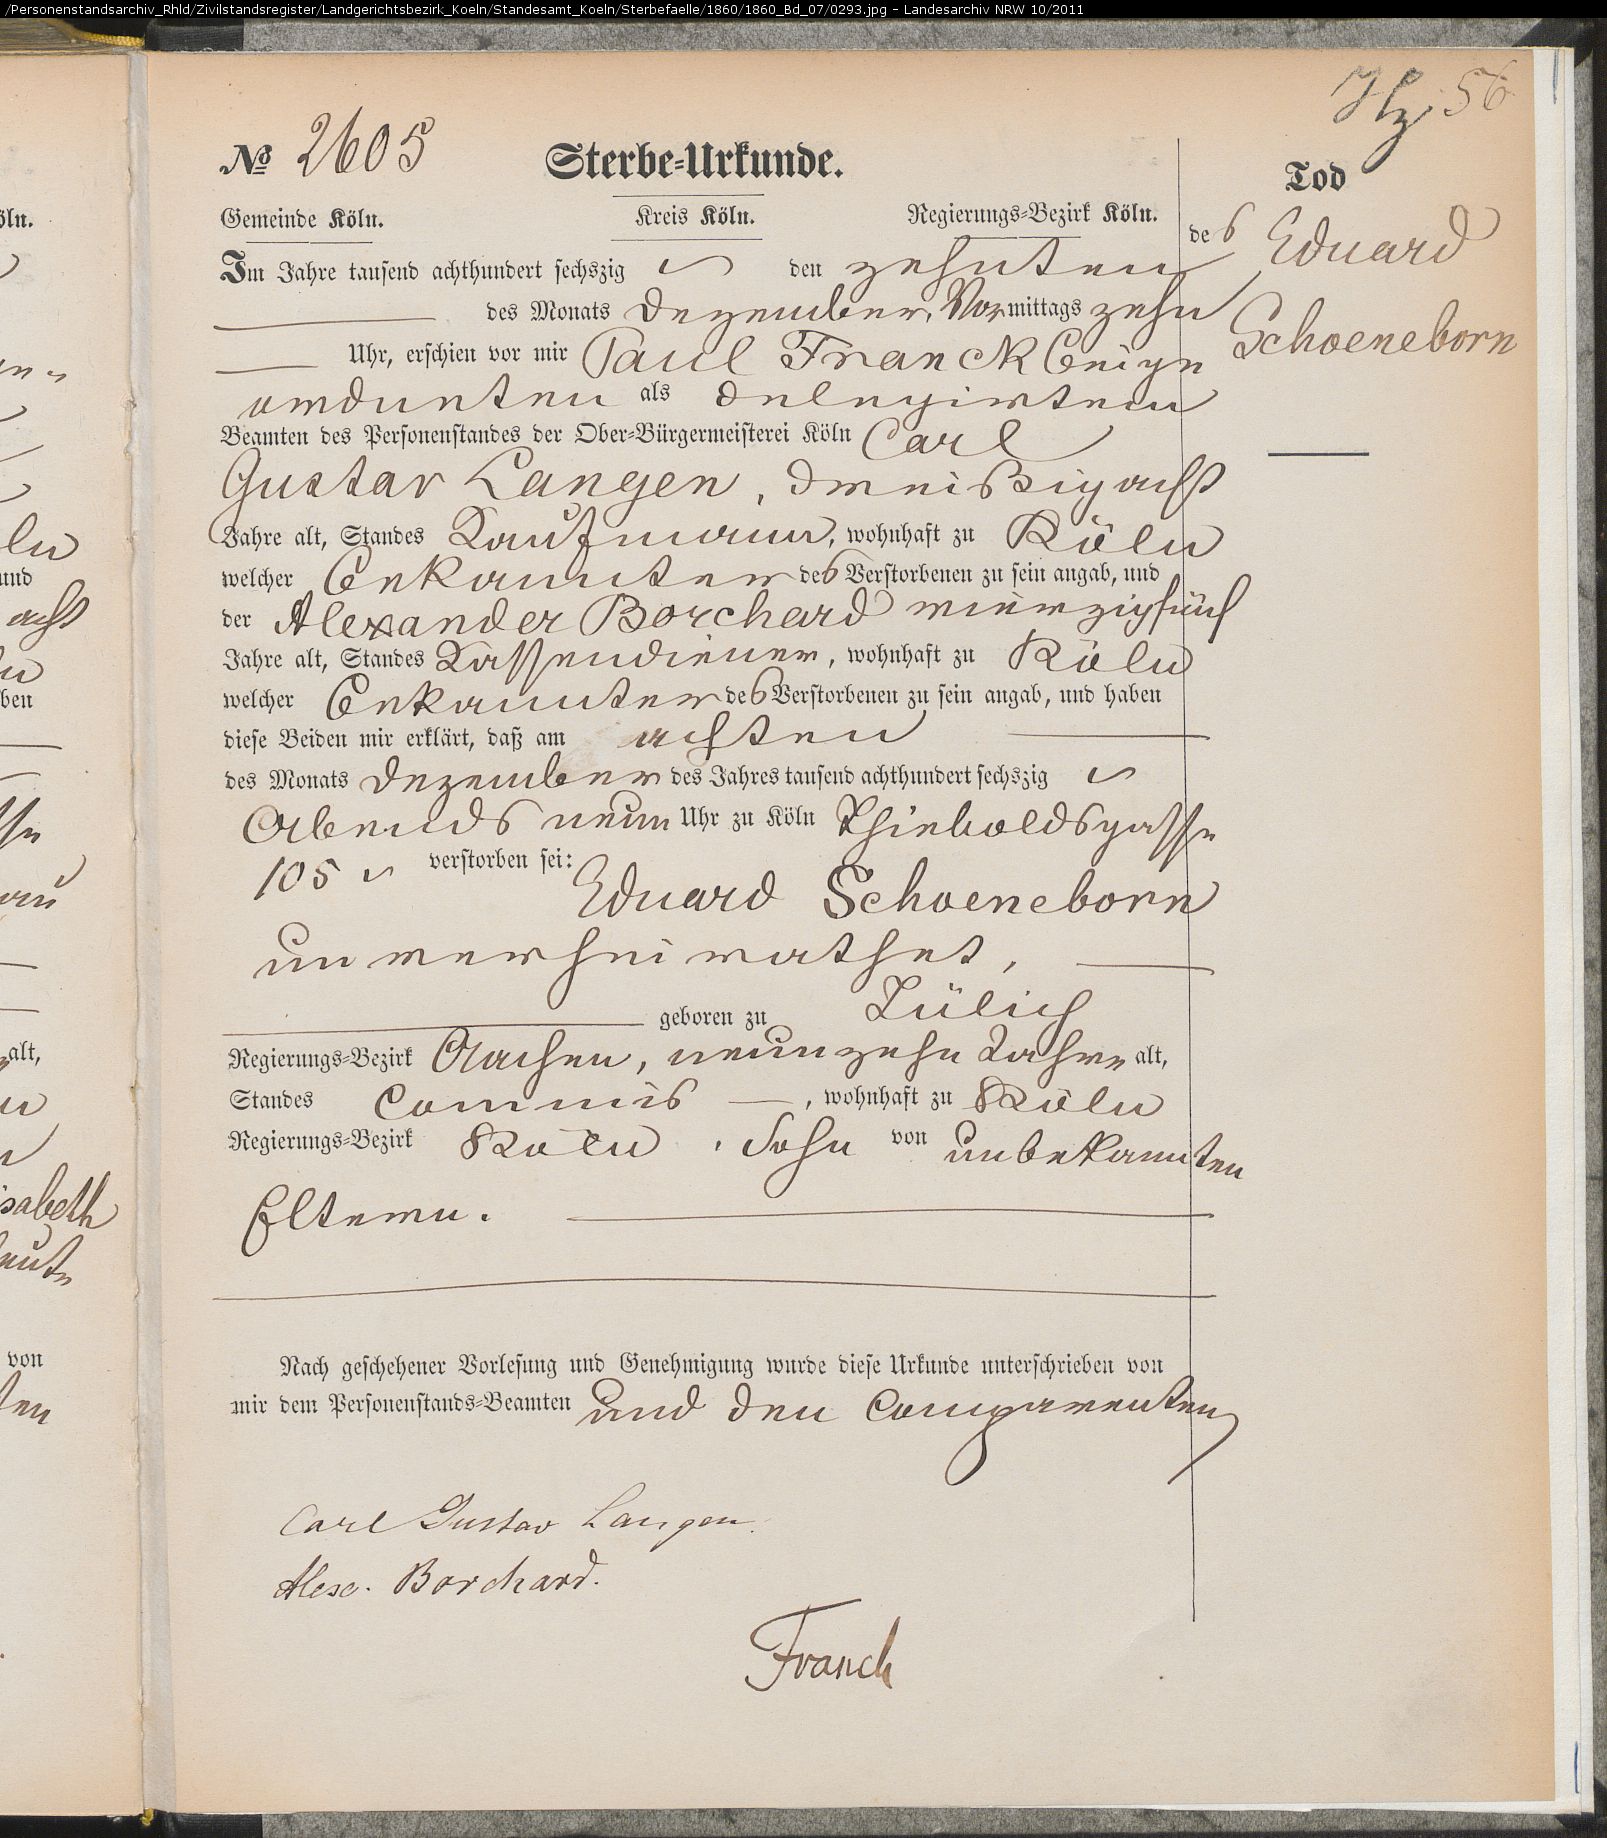 /Personenstandsarchiv_Rhld/Zivilstandsregister/Landgerichtsbezirk_Koeln/Standesamt_Koeln/Sterbefaelle/1860/1860_Bd_07/0293.jpg - Landesarchiv NRW 10/2011
56
№ 2605 Sterbe-Urkunde.
Gemeinde Köln. Kreis Köln. Regierungs-Bezirk Köln.
Im Jahre tausend achthundert sechszig den zehnten
des Monats Dezember, Vormittags zehn
Uhr, erschien vor mir Paul Franck Beige
ordneten als delegirtem
Beamten des Personenstandes der Ober-Bürgermeisterei Köln Carl
Gustav Langen, dreißigacht
Jahre alt, Standes Kaufmann, wohnhaft zu Köln
welcher Bekannter des Verstorbenen zu sein angab, und
der Alexander Borchard vierzigfünf
Jahre alt, Standes Kassendiener, wohnhaft zu Köln
welcher Bekannter des Verstorbenen zu sein angab, und haben
diese Beiden mir erklärt, daß am achten
des Monats Dezember des Jahres tausend achthundert sechszig
Abends neun Uhr zu Köln Thieboldsgasse
105 verstorben sei:
Eduard Schoeneborn
unverheirathet,
geboren zu Jülich
Regierungs-Bezirk Aachen, neunzehn Jahre alt,
Standes Commis, wohnhaft zu Köln
Regierungs-Bezirk Köln, Sohn von unbekannten
Eltern.
Nach geschehener Vorlesung und Genehmigung wurde diese Urkunde unterschrieben von
mir dem Personenstands-Beamten und den Comparenten
Carl Gustav Langen.
Alex. Borchard.
Franck
Tod
des Eduard
Schoeneborn
öln.
und
acht
ben
alt,
isabeth
von